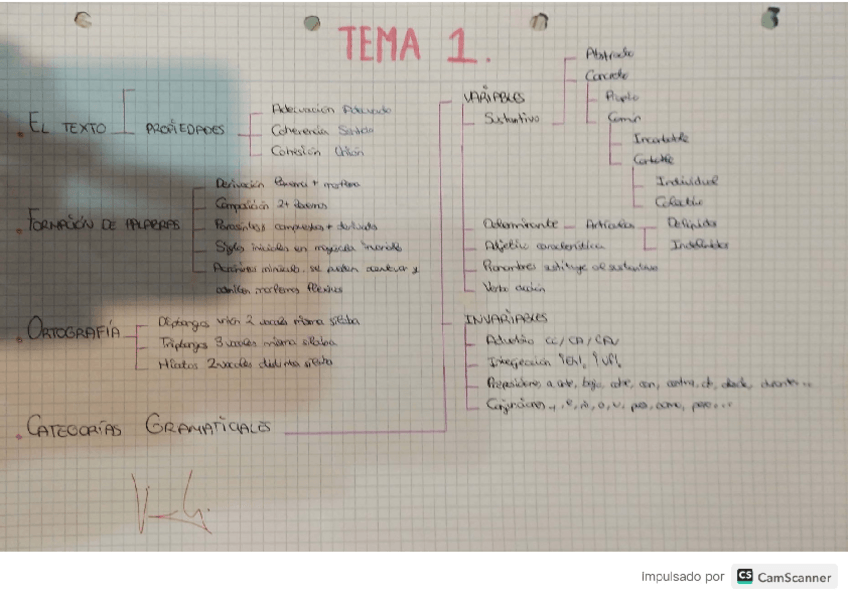 TEMA 1.
EL TEXTO
PROPIEDADES
Adecuación Adecuado
Coherencia Sentido
Cohesión Unión
FORMACIÓN DE PALABRAS
Derivación +
Composición 2+ lexemas
Parasíntesis compuestas + derivada
Siglas iniciales en mayúscula invariable
Acrónimos minúscula. se pueden y
admiten morfemas flexivos
ORTOGRAFÍA
Diptongos unión 2 vocales misma sílaba
Triptongos 3 vocales misma sílaba
Hiatos 2 vocales distinta sílaba
CATEGORÍAS GRAMATICALES
VARIABLES
Sustantivo
Abstracto
Concreto
Propio
Común
Incontable
Contable
Individual
Colectivo
Determinante - Artículos
Definidos
Indefinidos
Adjetivo característica
Pronombres sustituye al sustantivo
Verbo acción
INVARIABLES
Adverbio CC/CA/CAV
Interjección ¡Eh!, ¡Uf!
Preposiciones a, ante, bajo, cabe, con, contra, de, desde, durante...
Conjunciones y, e, ni, o, u, pues, como, pero...
Impulsado por CS CamScanner